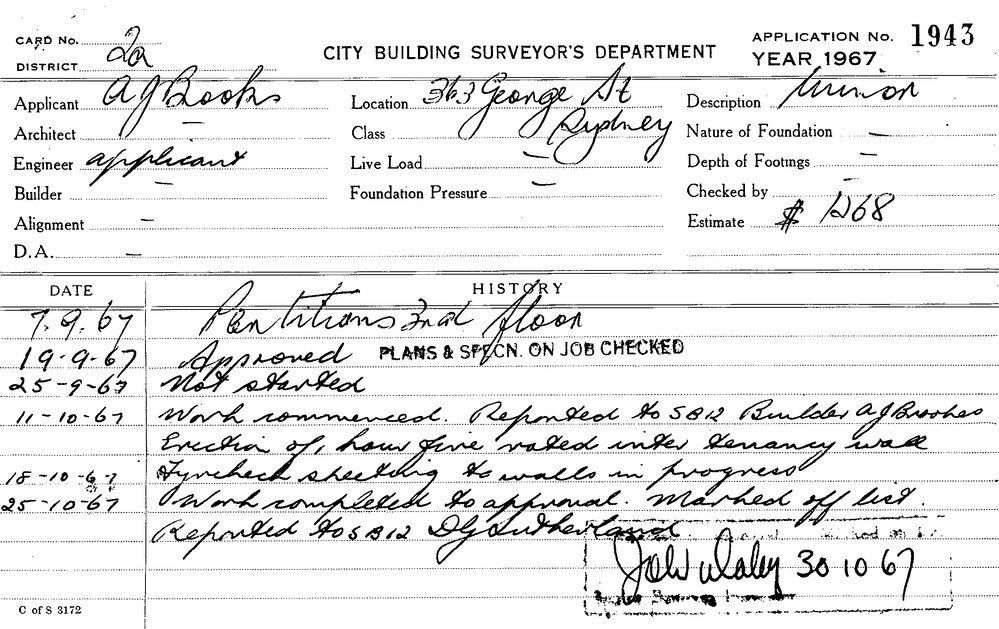 CARD No. 2a
DISTRICT
CITY BUILDING SURVEYOR'S DEPARTMENT
APPLICATION No. 1943
YEAR 1967
Applicant A J Brooks
Location 363 George St
Sydney
Description Minor
Architect —
Class
Nature of Foundation —
Engineer applicant
Live Load —
Depth of Footings —
Builder —
Foundation Pressure —
Checked by —
Alignment —
Estimate $ 1268
D.A. —
DATE HISTORY
7.9.67 Partitions 3rd floor
19-9-67 Approved PLANS & SPECN. ON JOB CHECKED
25-9-67 Not started
11-10-67 Work commenced. Reported to SB12 Builder A J Brookes
Erection of, hour fire rated inter tenancy wall
18-10-67 Fyrchek sheeting to walls in progress
25-10-67 Work completed to approval. Marked off list.
Reported to SB12 DG Sutherland
30 10 67
C of S 3172